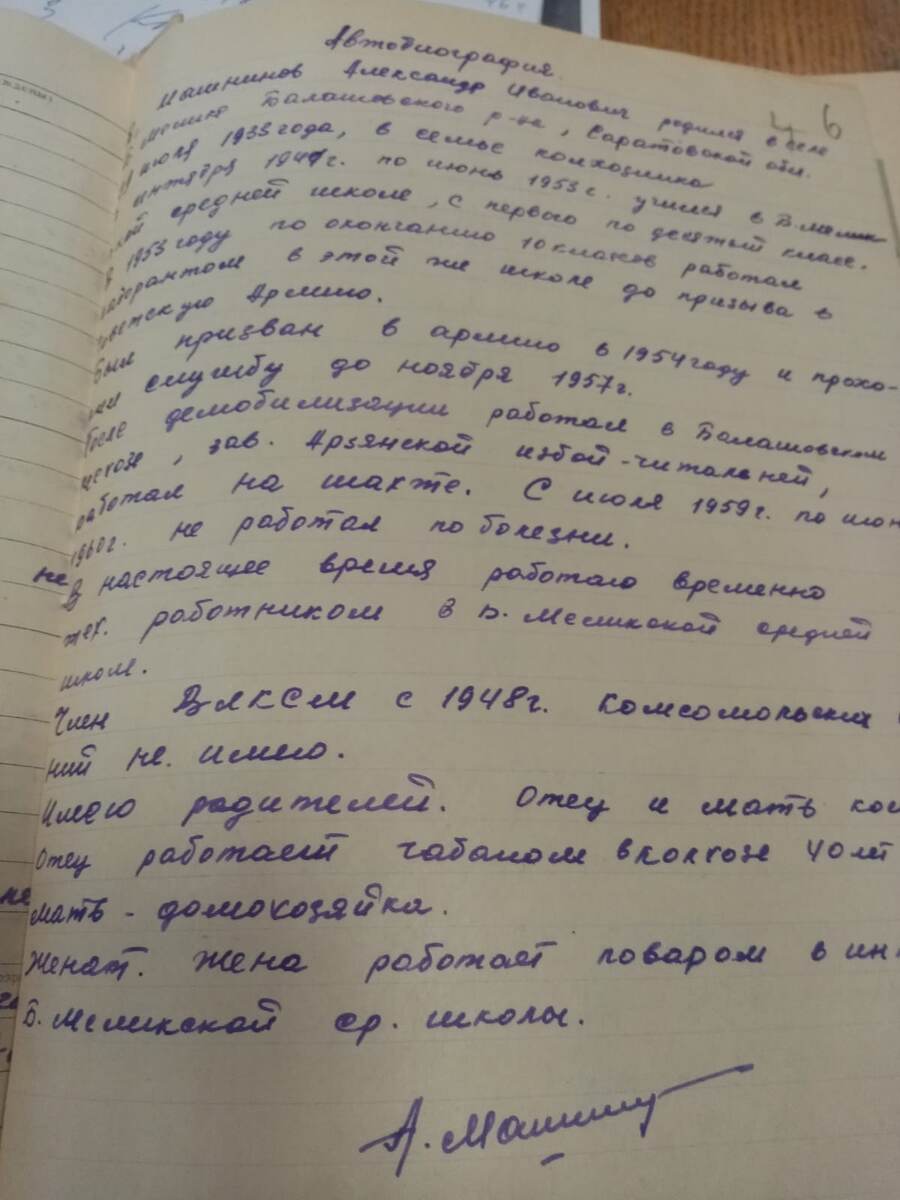 46
Автобиография.
Машнинов Александр Иванович родился в селе
Балашовского р-на, Саратовской обл.
июля 1933 года, в семье колхозника
1941г. по июнь 1953 г. учился в Б. Мелик
средней школе, с первого по десятый класс.
1953 году по окончанию 10 классов работал
лаборантом в этой же школе до призыва в
Советскую Армию.
Был призван в армию в 1954 году и прохо-
службу до ноября 1957г.
После демобилизации работал в Балашовском
зав. Арзянской избой-читальней,
работал на шахте. С июля 1959г. по июн
1960г. не работал по болезни.
В настоящее время работаю временно
тех. работником в Б. Меликской средней
школе.
Член ВЛКСМ с 1948г. Комсомольских
ний не имею.
Имею родителей. Отец и мать кол
Отец работает чабаном в колхозе 40 лет
мать - домохозяйка.
Женат. Жена работает поваром в инт
Б. Меликской ср. школы.
А. Машнин